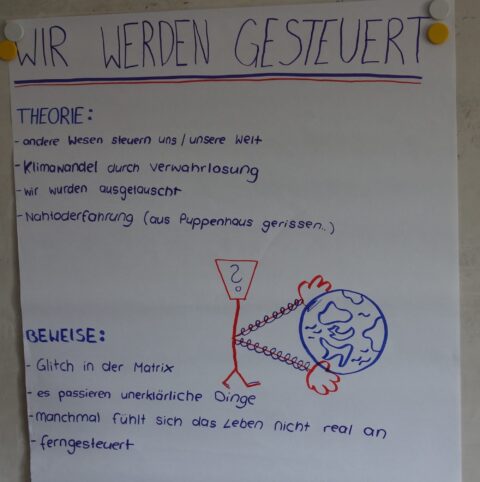 WIR WERDEN GESTEUERT
THEORIE:
- andere Wesen steuern uns / unsere Welt
- Klimawandel durch verwahrlosung
- wir wurden ausgetauscht
- Nahtoderfahrung (aus Puppenhaus gerissen..)
?
BEWEISE:
- Glitch in der Matrix
- es passieren unerklärliche Dinge
- manchmal fühlt sich das Leben nicht real an
- ferngesteuert